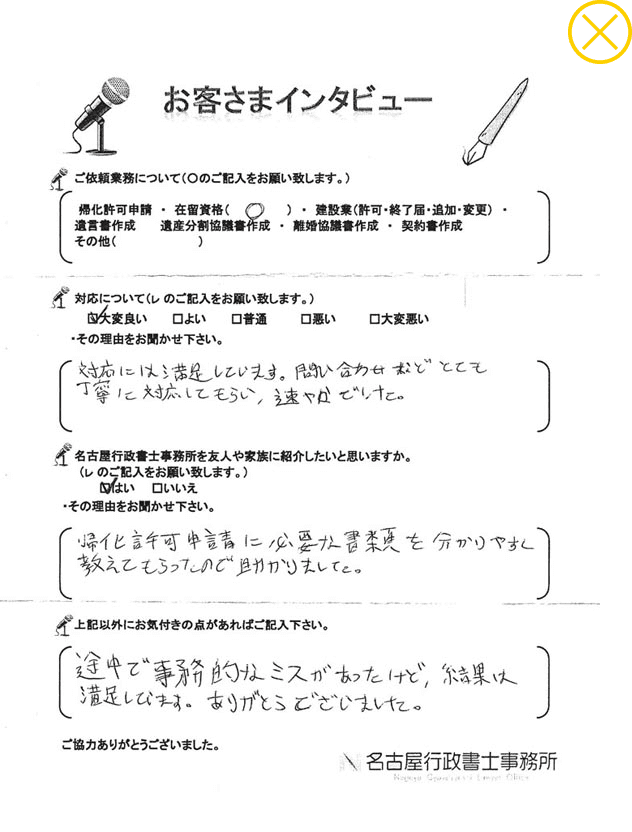 お客さまインタビュー
ご依頼業務について(〇のご記入をお願い致します。)
帰化許可申請 ・ 在留資格( 〇 ) ・ 建設業(許可・終了届・追加・変更) ・
遺言書作成 遺産分割協議書作成 ・ 離婚協議書作成 ・ 契約書作成
その他( )
対応について(レ のご記入をお願い致します。)
☑大変良い □よい □普通 □悪い □大変悪い
・その理由をお聞かせ下さい。
対応には満足しています。問い合わせなどとても
丁寧に対応してもらい、速やかでした。
名古屋行政書士事務所を友人や家族に紹介したいと思いますか。
(レ のご記入をお願い致します。)
☑はい □いいえ
・その理由をお聞かせ下さい。
帰化許可申請に必要な書類を分かりやすく
教えてもらったので助かりました。
上記以外にお気付きの点があればご記入下さい。
途中で事務的なミスがあったけど、結果は
満足しています。ありがとうございました。
ご協力ありがとうございました。
N 名古屋行政書士事務所